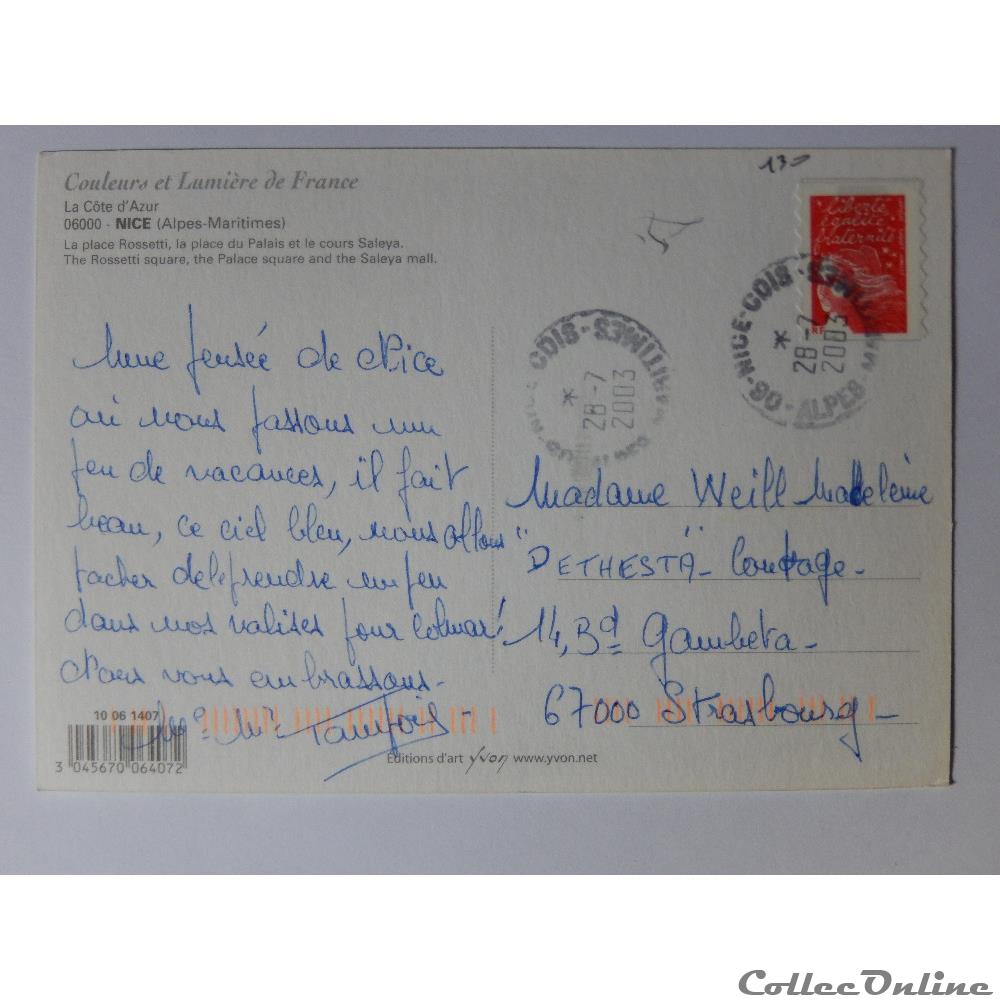 130
Couleurs et Lumière de France
La Côte d'Azur
06000 - NICE (Alpes-Maritimes)
La place Rossetti, la place du Palais et le cours Saleya.
The Rossetti square, the Palace square and the Saleya mall.
liberté
égalité
fraternité
RF
06-NICE-CDIS-
ALPES-MARITIMES
*
28-7
2003
CDIS -
MARITIMES
*
28-7
2003
Une pensée de Nice
où nous passons un
peu de vacances, il fait
beau, ce ciel bleu, nous allons
tacher de le prendre un peu
dans nos valises pour Colmar!
Nous vous embrassons-
Madame Weill Madeleine
"DETHESTA"-
14, Bd Gambeta-
67000 Strasbourg-
10 06 1407
3 045670 064072
Editions d'art yvon www.yvon.net
CollecOnline